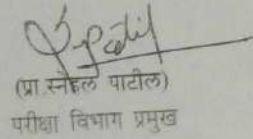 (प्रा.स्नेहल पाटील)
परीक्षा विभाग प्रमुख